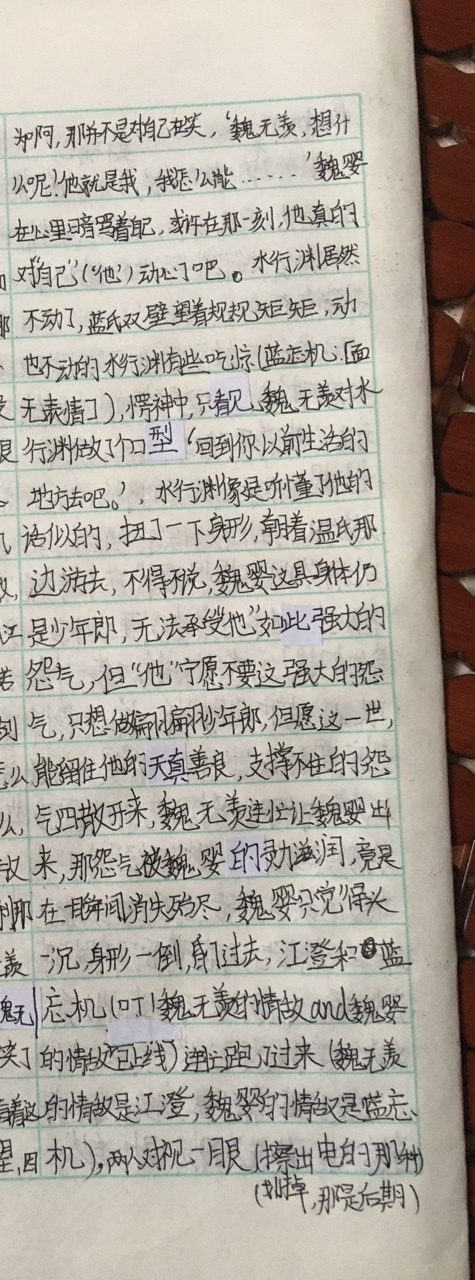 如阿,那并不是对自己在笑,‘魏无羡,想什
么呢!他就是我,我怎么能……’魏婴
在心里暗骂着自己,或许在那一刻,他真的
对“自己”(“他”)动心了吧。水行渊居然
不动了,蓝氏双壁望着规规矩矩,动
也不动的水行渊有些吃惊(蓝忘机:「面
无表情」),愣神中,只看见魏无羡对水
行渊做了个口型‘回到你以前生活的
地方去吧。’,水行渊像是听懂了他的
话似的,扭了一下身形,朝着温氏那
边游去,不得不说,魏婴这具身体仍
是少年郎,无法承受他”如此强大的
怨气,但“他”宁愿不要这强大的怨
气,只想做翩翩少年郎,但愿这一世,
能留住他的天真善良,支撑不住的怨
气四散开来,魏无羡连忙让魏婴出
来,那怨气被魏婴的灵力滋润,竟是
在瞬间消失殆尽,魏婴只觉得头
一沉,身形一倒,昏了过去,江澄和蓝
忘机(叮!魏无羡的情敌and魏婴
的情敌已上线)连忙跑了过来(魏无羡
的情敌是江澄,魏婴的情敌是蓝忘
机),两人对视一眼(擦出电的那种)
(划掉,那是后期)